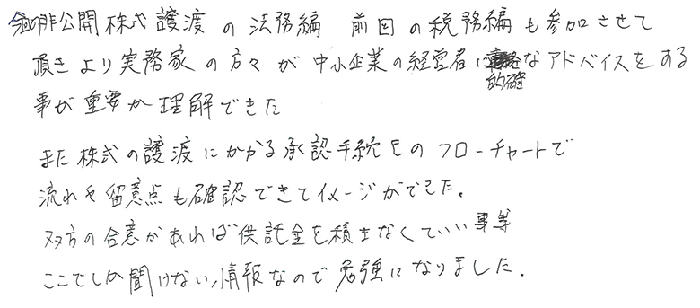 非公開株式譲渡の法務編 前回の税務編も参加させて
頂きより実務家の方々が中小企業の経営者に的確なアドバイスをする
事が重要か理解できた
また株式の譲渡にかかる承認手続きのフローチャートで
流れや留意点も確認できてイメージができた。
双方の合意があれば供託金を積まなくていい事等
ここでしか聞けない情報なので勉強になりました。